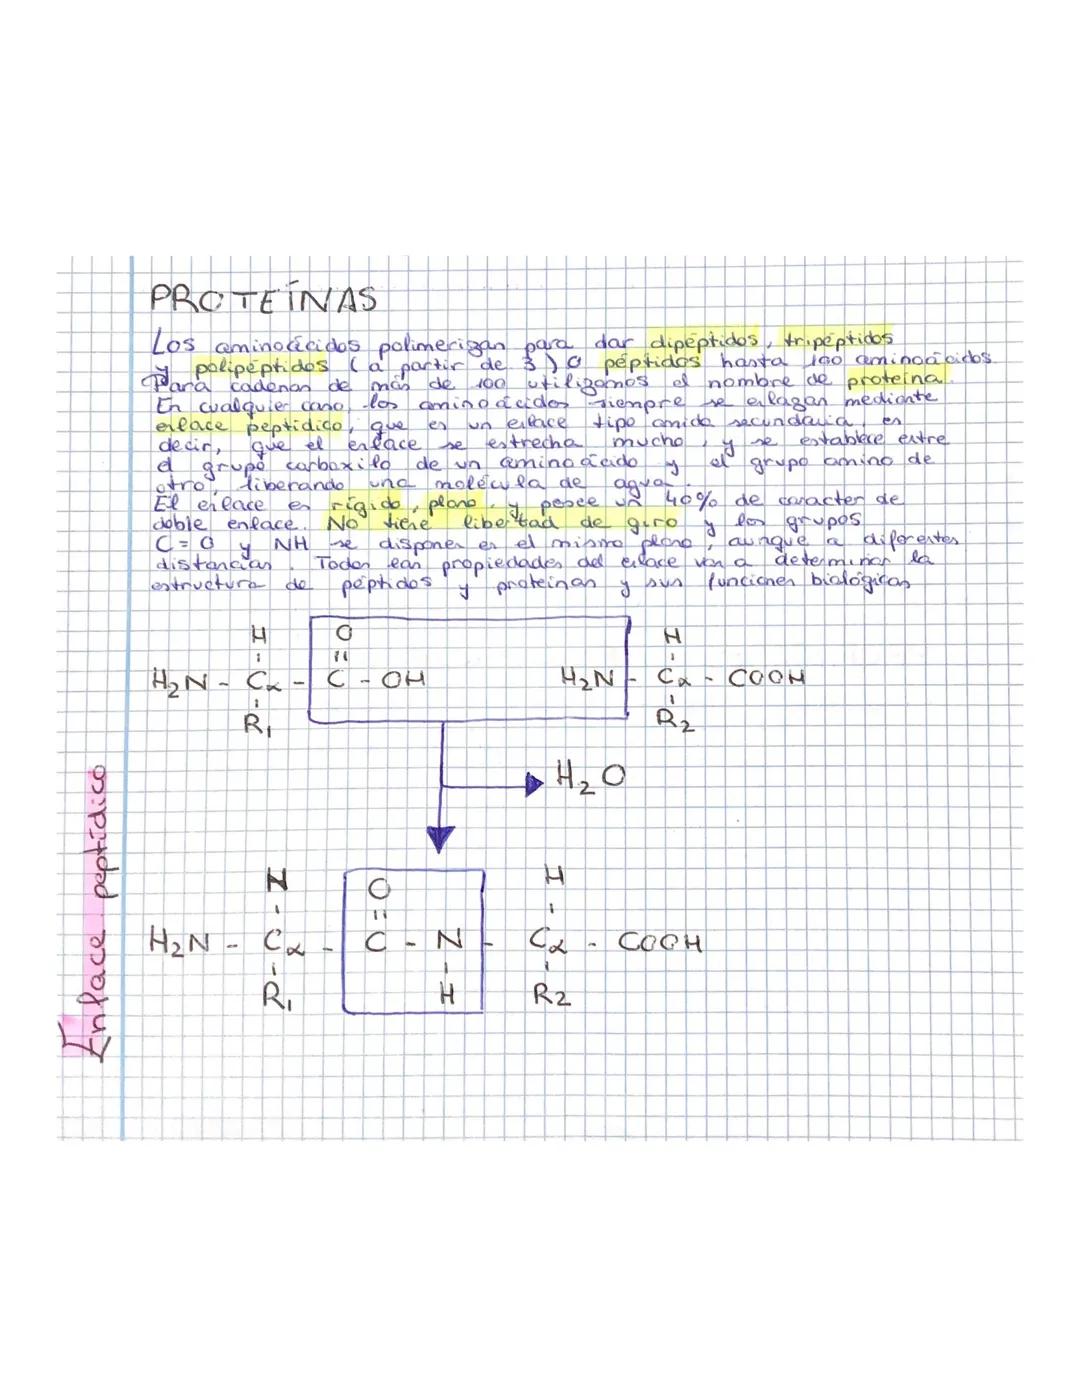 PROTEÍNAS
Los aminoácidos polimerizan para dar dipéptidos, tripéptidos
y polipéptidos (a partir de 3) o péptidos hasta 100 aminoácidos.
Para cadenas de más de 100 utilizamos el nombre de proteína.
En cualquier caso, los aminoácidos siempre se enlazan mediante
enlace peptídico, que es un enlace tipo amida secundaria, es
decir, que el enlace se estrecha mucho, y se establece entre
el grupo carboxilo de un aminoácido y el grupo amino de
otro, liberando una molécula de agua.
El enlace es rígido, plano, y posee un 40% de caracter de
doble enlace. No tiene libertad de giro y los grupos
C=O y NH se disponen en el mismo plano, aunque a diferentes
distancias. Todas las propiedades del enlace van a determinar la
estructura de péptidos y proteínas y sus funciones biológicas
H O H
H₂N - Cα - C - OH H₂N - Cα - COOH
R₁ R₂
H₂O
Enlace peptídico
N O H
H₂N - Cα - C - N - Cα - COOH
R₁ H R2